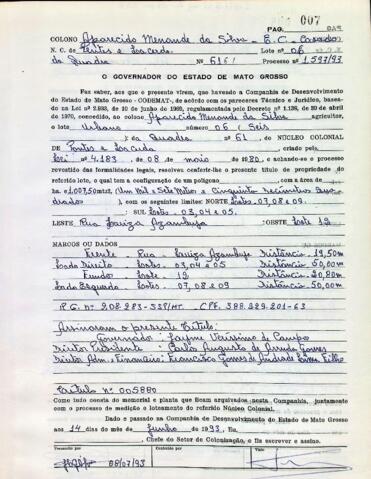 007
PAG.
COLONO Aparecido Menande da Silva - B.C - Casado
N. C. de Pontes e Lacerda Lote nº 06
da Quadra Nº 61 Processo nº 1.597/93
O GOVERNADOR DO ESTADO DE MATO GROSSO
FAZ SABER, aos que o presente virem, que havendo a Companhia de Desenvolvimento
do Estado de Mato Grosso - CODEMAT-, de acordo com os pareceres Técnico e Jurídico, basea-
1970, concedido, ao colono Aparecido Menande da Silva agricultor,
o lote Urbano número 06 (Seis
da Quadra nº 61, do NÚCLEO COLONIAL
de Pontes e Lacerda
Lei nº 4.183, de 08 de maio de 1980, e achando-se o processo
revestido das formalidades legais, resolveu conferir-lhe o presente título de propriedade do
referido lote, o qual tem a configuração de um polígono com a área de
drado) com os seguintes limites: NORTE Lotes. 07,08 e 09.
: SUL Lotes. 03, 04 e 05.
LESTE Rua Luiza Azambuja :OESTE Lote 12
MARCOS OU DADOS
Frente - Rua - Luiza Azambuja Distância: 19,50m
Lado Direito Lotes. 03,04 e 05 Distância: 50,00m
Fundos - Lote - 12 Distância: 20,80m
Lado Esquerdo Lotes. 07,08 e 09 Distância: 50,00m
Assinaram o presente Título:
Governador: Jayme Veríssimo de Campos
Diretor Presidente Carlos Augusto de Arruda Gomes
Título nº 005880
Como tudo consta do memorial e planta que ficam arquivados nesta Companhia, juntamente
com o processo de medição e loteamento do referido Núcleo Colonial.
Dado e passado na Companhia de Desenvolvimento do Estado de Mato Grosso,
aos 14 dias do mês de Junho de 1993. Eu,
, Chefe do Setor de Colonização, o fiz escrever e assino.
Conferido Em Visto
08/07/93